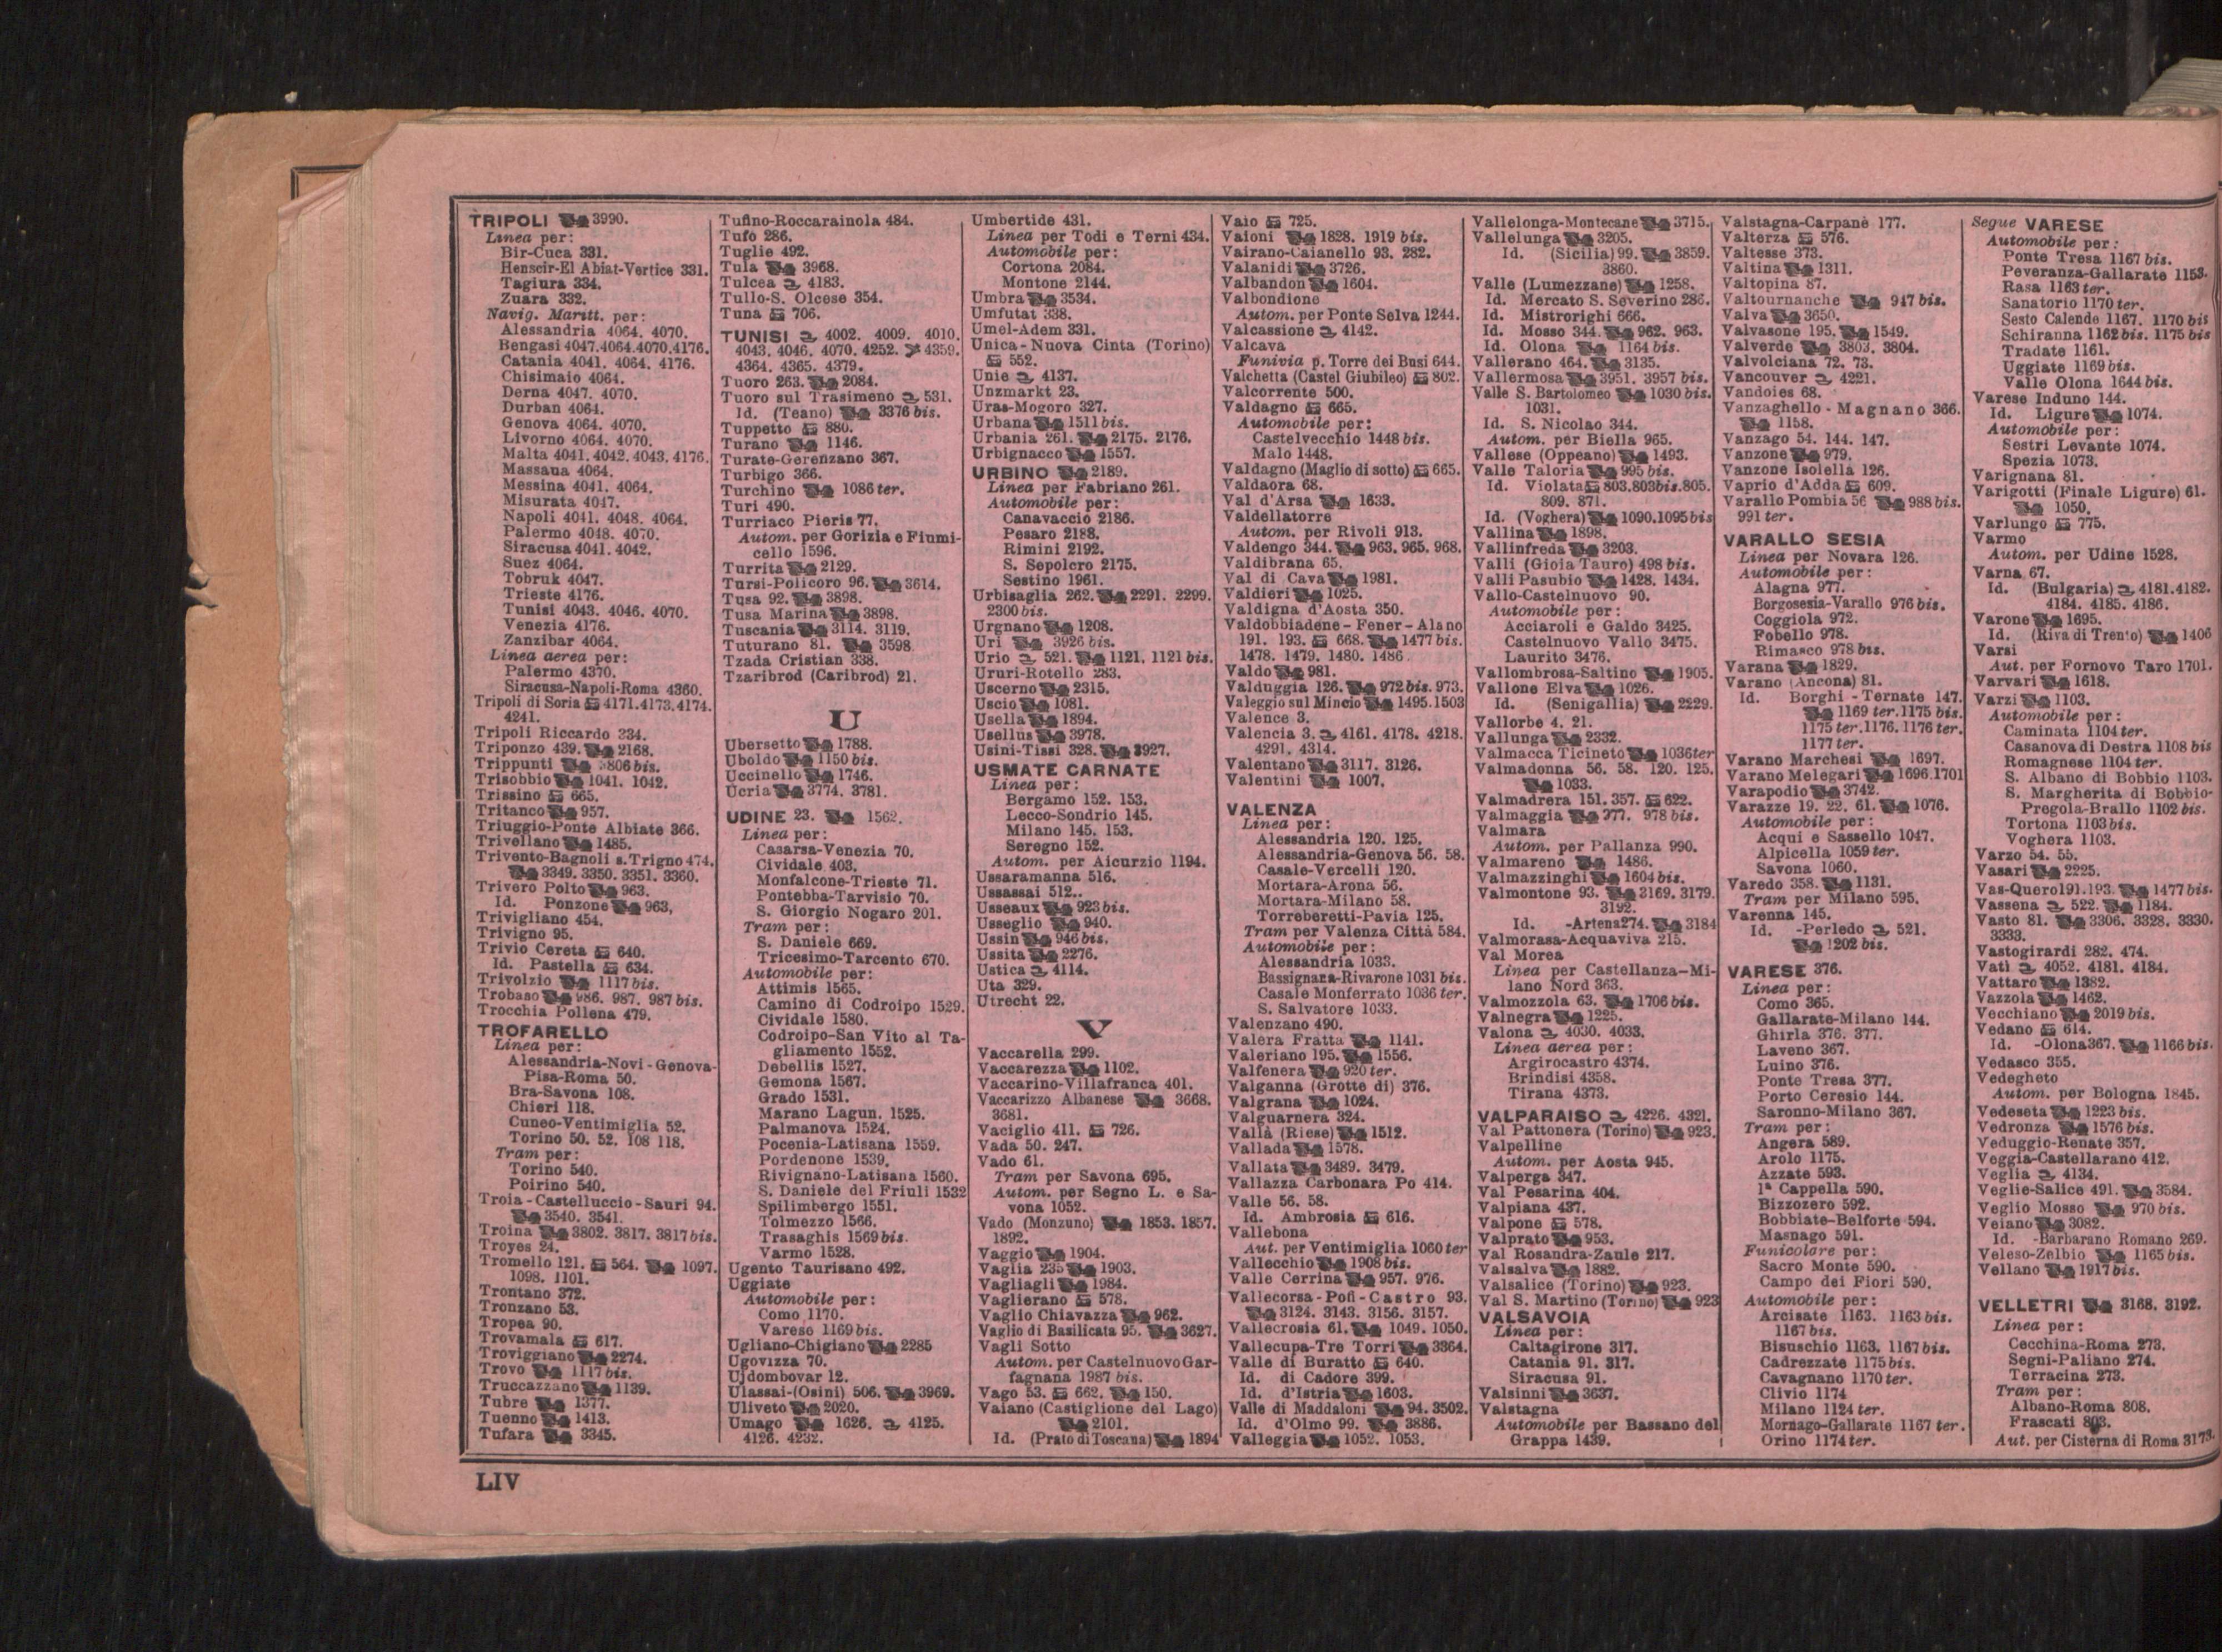 TRIPOLI 3990.
Linea per:
Bir-Cuca 331.
Henscir-El Abiat-Vertice 331.
Tagiura 334.
Zuara 332.
Navig. Maritt. per:
Alessandria 4064. 4070.
Bengasi 4047.4064.4070.4176.
Catania 4041. 4064. 4176.
Chisimaio 4064.
Derna 4047. 4070.
Durban 4064.
Genova 4064. 4070.
Livorno 4064. 4070.
Malta 4041. 4042. 4043. 4176.
Massaua 4064.
Messina 4041. 4064.
Misurata 4047.
Napoli 4041. 4048. 4064.
Palermo 4048. 4070.
Siracusa 4041. 4042.
Suez 4064.
Tobruk 4047.
Trieste 4176.
Tunisi 4043. 4046. 4070.
Venezia 4176.
Zanzibar 4064.
Linea aerea per:
Palermo 4370.
Siracusa-Napoli-Roma 4360.
Tripoli di Soria 4171.4173.4174.
4241.
Tripoli Riccardo 334.
Triponzo 439. 2168.
Trippunti 3806 bis.
Trisobbio 1041. 1042.
Trissino 665.
Tritanco 957.
Triuggio-Ponte Albiate 366.
Trivellano 1485.
Trivento-Bagnoli s. Trigno 474.
3349. 3350. 3351. 3360.
Trivero Polto 963.
Id. Ponzone 963.
Trivigliano 454.
Trivigno 95.
Trivio Cereta 640.
Id. Pastella 634.
Trivolzio 1117 bis.
Trobaso 986. 987. 987 bis.
Trocchia Pollena 479.
TROFARELLO
Linea per:
Alessandria-Novi-Genova-
Pisa-Roma 50.
Bra-Savona 108.
Chieri 118.
Cuneo-Ventimiglia 52.
Torino 50. 52. 108 118.
Tram per:
Torino 540.
Poirino 540.
Troia-Castelluccio-Sauri 94.
3540. 3541.
Troina 3802. 3817. 3817 bis.
Troyes 24.
Tromello 121. 564. 1097.
1098. 1101.
Trontano 372.
Tronzano 53.
Tropea 90.
Trovamala 617.
Troviggiano 2274.
Trovo 1117 bis.
Truccazzano 1139.
Tubre 1377.
Tuenno 1413.
Tufara 3345.
Tufino-Roccarainola 484.
Tufo 286.
Tuglie 492.
Tula 3968.
Tulcea 4183.
Tullo-S. Olcese 354.
Tuna 706.
TUNISI 4002. 4009. 4010.
4043. 4046. 4070. 4252. 4359.
4364. 4365. 4379.
Tuoro 263. 2084.
Tuoro sul Trasimeno 531.
Id. (Teano) 3376 bis.
Tuppetto 880.
Turano 1146.
Turate-Gerenzano 367.
Turbigo 366.
Turchino 1086 ter.
Turi 490.
Turriaco Pieris 77.
Autom. per Gorizia e Fiumi-
cello 1596.
Turrita 2129.
Tursi-Policoro 96. 3614.
Tusa 92. 3898.
Tusa Marina 3898.
Tuscania 3114. 3119.
Tuturano 81. 3598
Tzada Cristian 338.
Tzaribrod (Caribrod) 21.
U
Ubersetto 1788.
Uboldo 1150 bis.
Uccinello 1746.
Ucria 3774. 3781.
UDINE 23. 1562.
Linea per:
Casarsa-Venezia 70.
Cividale 403.
Monfalcone-Trieste 71.
Pontebba-Tarvisio 70.
S. Giorgio Nogaro 201.
Tram per:
S. Daniele 669.
Tricesimo-Tarcento 670.
Automobile per:
Attimis 1565.
Camino di Codroipo 1529.
Cividale 1580.
Codroipo-San Vito al Ta-
gliamento 1552.
Debellis 1527.
Gemona 1567.
Grado 1531.
Marano Lagun. 1525.
Palmanova 1524.
Pocenia-Latisana 1559.
Pordenone 1539.
Rivignano-Latisana 1560.
S. Daniele del Friuli 1532
Spilimbergo 1551.
Tolmezzo 1566.
Trasaghis 1569 bis.
Varmo 1528.
Ugento Taurisano 492.
Uggiate
Automobile per:
Como 1170.
Varese 1169 bis.
Ugliano-Chigiano 2285
Ugovizza 70.
Ujdombovar 12.
Ulassai-(Osini) 506. 3969.
Uliveto 2020.
Umago 1626. 4125.
4126. 4232.
Umbertide 431.
Linea per Todi e Terni 434.
Automobile per:
Cortona 2084.
Montone 2144.
Umbra 3534.
Umfutat 338.
Umel-Adem 331.
Unica-Nuova Cinta (Torino)
552.
Unie 4137.
Unzmarkt 23.
Uras-Mogoro 327.
Urbana 1511 bis.
Urbania 261. 2175. 2176.
Urbignacco 1557.
URBINO 2189.
Linea per Fabriano 261.
Automobile per:
Canavaccio 2186.
Pesaro 2188.
Rimini 2192.
S. Sepolcro 2175.
Sestino 1961.
Urbisaglia 262. 2291. 2299.
2300 bis.
Urgnano 1208.
Uri 3926 bis.
Urio 521. 1121. 1121 bis.
Ururi-Rotello 283.
Uscerno 2315.
Uscio 1081.
Usella 1894.
Usellus 3978.
Usini-Tissi 328. 3927.
USMATE CARNATE
Linea per:
Bergamo 152. 153.
Lecco-Sondrio 145.
Milano 145. 153.
Seregno 152.
Autom. per Aicurzio 1194.
Ussaramanna 516.
Ussassai 512..
Usseaux 923 bis.
Usseglio 940.
Ussin 946 bis.
Ussita 2276.
Ustica 4114.
Uta 329.
Utrecht 22.
V
Vaccarella 299.
Vaccarezza 1102.
Vaccarino-Villafranca 401.
Vaccarizzo Albanese 3668.
3681.
Vaciglio 411. 726.
Vada 50. 247.
Vado 61.
Tram per Savona 695.
Autom. per Segno L. e Sa-
vona 1052.
Vado (Monzuno) 1853. 1857.
1892.
Vaggio 1904.
Vaglia 235 1903.
Vagliagli 1984.
Vaglierano 578.
Vaglio Chiavazza 962.
Vaglio di Basilicata 95. 3627.
Vagli Sotto
Autom. per Castelnuovo Gar-
fagnana 1987 bis.
Vago 53. 662. 150.
Vaiano (Castiglione del Lago)
2101.
Id. (Prato di Toscana) 1894
Vaio 725.
Vaioni 1828. 1919 bis.
Vairano-Caianello 93. 282.
Valanidi 3726.
Valbandon 1604.
Valbondione
Autom. per Ponte Selva 1244.
Valcassione 4142.
Valcava
Funivia p. Torre dei Busi 644.
Valchetta (Castel Giubileo) 802.
Valcorrente 500.
Valdagno 665.
Automobile per:
Castelvecchio 1448 bis.
Malo 1448.
Valdagno (Maglio di sotto) 665.
Valdaora 68.
Val d'Arsa 1633.
Valdellatorre
Autom. per Rivoli 913.
Valdengo 344. 963. 965. 968.
Valdibrana 65.
Val di Cava 1981.
Valdieri 1025.
Valdigna d'Aosta 350.
Valdobbiadene-Fener-Alano
191. 193. 668. 1477 bis.
1478. 1479. 1480. 1486
Valdo 981.
Valduggia 126. 972 bis. 973.
Valeggio sul Mincio 1495.1503
Valence 3.
Valencia 3. 4161. 4178. 4218.
4291. 4314.
Valentano 3117. 3126.
Valentini 1007.
VALENZA
Linea per:
Alessandria 120. 125.
Alessandria-Genova 56. 58.
Casale-Vercelli 120.
Mortara-Arona 56.
Mortara-Milano 58.
Torreberetti-Pavia 125.
Tram per Valenza Città 584.
Automobile per:
Alessandria 1033.
Bassignana-Rivarone 1031 bis.
Casale Monferrato 1036 ter.
S. Salvatore 1033.
Valenzano 490.
Valera Fratta 1141.
Valeriano 195. 1556.
Valfenera 920 ter.
Valganna (Grotte di) 376.
Valgrana 1024.
Valguarnera 324.
Vallà (Riese) 1512.
Vallada 1578.
Vallata 3489. 3479.
Vallazza Carbonara Po 414.
Valle 56. 58.
Id. Ambrosia 616.
Vallebona
Aut. per Ventimiglia 1060 ter
Vallecchio 1908 bis.
Valle Cerrina 957. 976.
Vallecorsa-Pofi-Castro 93.
3124. 3143. 3156. 3157.
Vallecrosia 61. 1049. 1050.
Vallecupa-Tre Torri 3364.
Valle di Buratto 640.
Id. di Cadore 399.
Id. d'Istria 1603.
Valle di Maddaloni 94. 3502.
Id. d'Olmo 99. 3886.
Valleggia 1052. 1053.
Vallelonga-Montecane 3715.
Vallelunga 3205.
Id. (Sicilia) 99. 3859.
3860.
Valle (Lumezzane) 1258.
Id. Mercato S. Severino 286.
Id. Mistrorighi 666.
Id. Mosso 344. 962. 963.
Id. Olona 1164 bis.
Vallerano 464. 3135.
Vallermosa 3951. 3957 bis.
Valle S. Bartolomeo 1030 bis.
1031.
Id. S. Nicolao 344.
Autom. per Biella 965.
Vallese (Oppeano) 1493.
Valle Taloria 995 bis.
Id. Violata 803.803bis.805.
809. 871.
Id. (Voghera) 1090.1095 bis
Vallina 1898.
Vallinfreda 3203.
Valli (Gioia Tauro) 498 bis.
Valli Pasubio 1428. 1434.
Vallo-Castelnuovo 90.
Automobile per:
Acciaroli e Galdo 3425.
Castelnuovo Vallo 3475.
Laurito 3476.
Vallombrosa-Saltino 1905.
Vallone Elva 1026.
Id. (Senigallia) 2229.
Vallorbe 4. 21.
Vallunga 2332.
Valmacca Ticineto 1036ter
Valmadonna 56. 58. 120. 125.
1033.
Valmadrera 151. 357. 622.
Valmaggia 977. 978 bis.
Valmara
Autom. per Pallanza 990.
Valmareno 1486.
Valmazzinghi 1604 bis.
Valmontone 93. 3169. 3179.
3192.
Id. -Artena274. 3184
Valmorasa-Acquaviva 215.
Val Morea
Linea per Castellanza-Mi-
lano Nord 363.
Valmozzola 63. 1706 bis.
Valnegra 1225.
Valona 4030. 4033.
Linea aerea per:
Argirocastro 4374.
Brindisi 4358.
Tirana 4373.
VALPARAISO 4226. 4321.
Val Pattonera (Torino) 923.
Valpelline
Autom. per Aosta 945.
Valperga 347.
Val Pesarina 404.
Valpiana 437.
Valpone 578.
Valprato 953.
Val Rosandra-Zaule 217.
Valsalva 1882.
Valsalice (Torino) 923.
Val S. Martino (Torino) 923
VALSAVOIA
Linea per:
Caltagirone 317.
Catania 91. 317.
Siracusa 91.
Valsinni 3637.
Valstagna
Automobile per Bassano del
Grappa 1439.
Valstagna-Carpanè 177.
Valterza 576.
Valtesse 373.
Valtina 1311.
Valtopina 87.
Valtournanche 947 bis.
Valva 3650.
Valvasone 195. 1549.
Valverde 3803. 3804.
Valvolciana 72. 73.
Vancouver 4221.
Vandoies 68.
Vanzaghello-Magnano 366.
1158.
Vanzago 54. 144. 147.
Vanzone 979.
Vanzone Isolella 126.
Vaprio d'Adda 609.
Varallo Pombia 56 988 bis.
991 ter.
VARALLO SESIA
Linea per Novara 126.
Automobile per:
Alagna 977.
Borgosesia-Varallo 976 bis.
Coggiola 972.
Fobello 978.
Rimasco 978 bis.
Varana 1829.
Varano (Ancona) 81.
Id. Borghi-Ternate 147.
1169 ter. 1175 bis.
1175 ter.1176. 1176 ter.
1177 ter.
Varano Marchesi 1697.
Varano Melegari 1696.1701
Varapodio 3742.
Varazze 19. 22. 61. 1076.
Automobile per:
Acqui e Sassello 1047.
Alpicella 1059 ter.
Savona 1060.
Varedo 358. 1131.
Tram per Milano 595.
Varenna 145.
Id. -Perledo 521.
1202 bis.
VARESE 376.
Linea per:
Como 365.
Gallarate-Milano 144.
Ghirla 376. 377.
Laveno 367.
Luino 376.
Ponte Tresa 377.
Porto Ceresio 144.
Saronno-Milano 367.
Tram per:
Angera 589.
Arolo 1175.
Azzate 593.
1ª Cappella 590.
Bizzozero 592.
Bobbiate-Belforte 594.
Masnago 591.
Funicolare per:
Sacro Monte 590.
Campo dei Fiori 590.
Automobile per:
Arcisate 1163. 1163 bis.
1167 bis.
Bisuschio 1163. 1167 bis.
Cadrezzate 1175 bis.
Cavagnano 1170 ter.
Clivio 1174
Milano 1124 ter.
Mornago-Gallarate 1167 ter.
Orino 1174 ter.
Segue VARESE
Automobile per:
Ponte Tresa 1167 bis.
Peveranza-Gallarate 1153.
Rasa 1163 ter.
Sanatorio 1170 ter.
Sesto Calende 1167. 1170 bis
Schiranna 1162 bis. 1175 bis
Tradate 1161.
Uggiate 1169 bis.
Valle Olona 1644 bis.
Varese Induno 144.
Id. Ligure 1074.
Automobile per:
Sestri Levante 1074.
Spezia 1073.
Varignana 81.
Varigotti (Finale Ligure) 61.
1050.
Varlungo 775.
Varmo
Autom. per Udine 1528.
Varna 67.
Id. (Bulgaria) 4181.4182.
4184. 4185. 4186.
Varone 1695.
Id. (Riva di Trento) 1406
Varsi
Aut. per Fornovo Taro 1701.
Varvari 1618.
Varzi 1103.
Automobile per:
Caminata 1104 ter.
Casanova di Destra 1108 bis
Romagnese 1104 ter.
S. Albano di Bobbio 1103.
S. Margherita di Bobbio-
Pregola-Brallo 1102 bis.
Tortona 1103 bis.
Voghera 1103.
Varzo 54. 55.
Vasari 2225.
Vas-Quero191.193. 1477 bis.
Vassena 522. 1184.
Vasto 81. 3306. 3328. 3330.
3333.
Vastogirardi 282. 474.
Vati 4052. 4181. 4184.
Vattaro 1382.
Vazzola 1462.
Vecchiano 2019 bis.
Vedano 614.
Id. -Olona367. 1166 bis.
Vedasco 355.
Vedegheto
Autom. per Bologna 1845.
Vedeseta 1223 bis.
Vedronza 1576 bis.
Veduggio-Renate 357.
Veggia-Castellarano 412.
Veglia 4134.
Veglie-Salice 491. 3584.
Veglio Mosso 970 bis.
Veiano 3082.
Id. -Barbarano Romano 269.
Veleso-Zelbio 1165 bis.
Vellano 1917 bis.
VELLETRI 3168. 3192.
Linea per:
Cecchina-Roma 273.
Segni-Paliano 274.
Terracina 273.
Tram per:
Albano-Roma 808.
Frascati 803.
Aut. per Cisterna di Roma 3173.
LIV